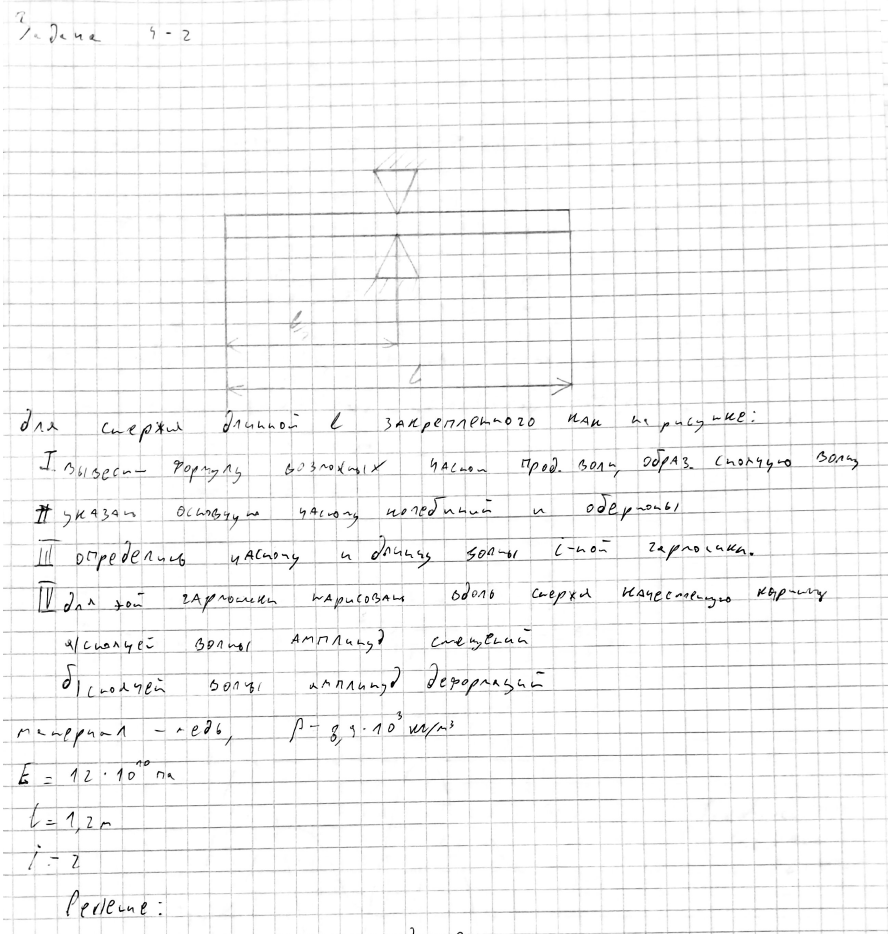 Задача 4-2
l
Для стержня длинной l закрепленного как на рисунке:
I. вывести формулу возможных частот прод. волн, образ. стоячую волну
II указать основную частоту колебаний и обертоны
III определить частоту и длину волны i-той гармоники.
IV для этой гармоники нарисовать вдоль стержня качественную картину
а) стоячей волны амплитуд смещений
б) стоячей волны амплитуд деформаций
материал - медь, ρ - 8,9·10³ кг/м³
E = 12·10¹⁰ па
l = 1,2 м
i = 2
Решение: